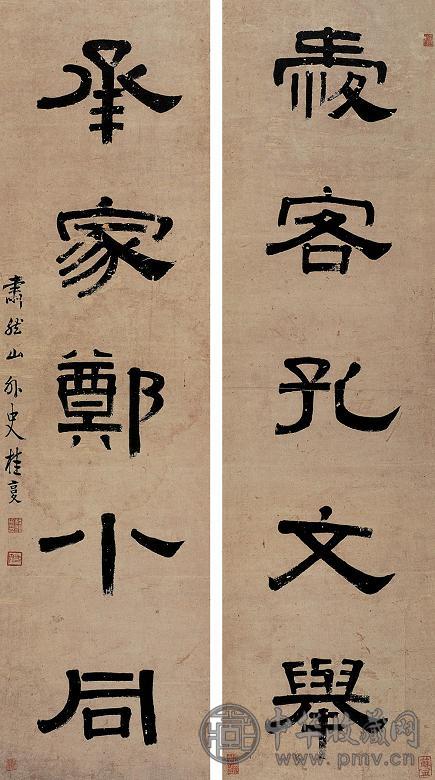 爱客孔文舉
承家鄭小同
肅然山外史桂馥
中华收藏网
www.pmv.cn